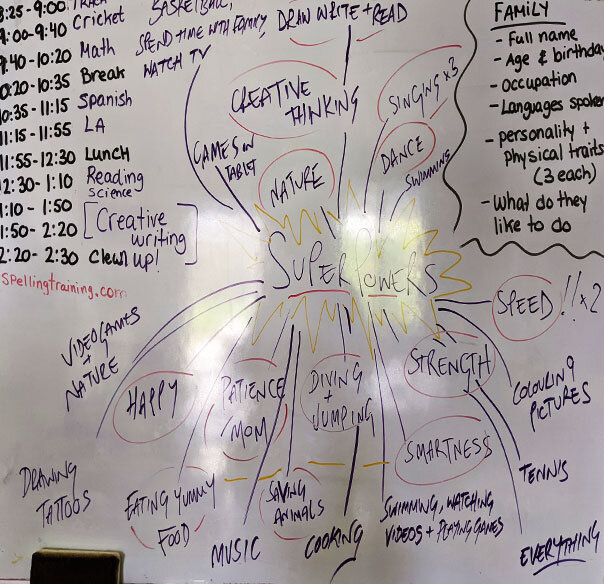 8:25 - 9:00
9:00 - 9:40 Cricket
9:40 - 10:20 Math
10:20 - 10:35 Break
10:35 - 11:15 Spanish
11:15 - 11:55 LA
11:55 - 12:30 Lunch
12:30 - 1:10 Reading
science
1:10 - 1:50
1:50 - 2:20 [Creative
writing]
2:20 - 2:30 Clean up!
spellingtraining.com
BASKETBALL,
SPEND TIME WITH FAMILY,
WATCH TV
DRAW WRITE + READ
CREATIVE
THINKING
SINGING x3
GAMES IN
TABLET
NATURE
DANCE
SWIMMING
SUPERPOWERS
FAMILY
- Full name
- Age & birthday
- Occupation
- Languages spoken
- personality +
physical traits
(3 each)
- What do they
like to do
VIDEOGAMES
+
NATURE
HAPPY
PATIENCE
MOM
DIVING
+
JUMPING
STRENGTH
SPEED !! x2
COLOURING
PICTURES
SMARTNESS
TENNIS
DRAWING
TATTOOS
EATING YUMMY
FOOD
SAVING
ANIMALS
MUSIC
COOKING
SWIMMING, WATCHING
VIDEOS + PLAYING GAMES
EVERYTHING